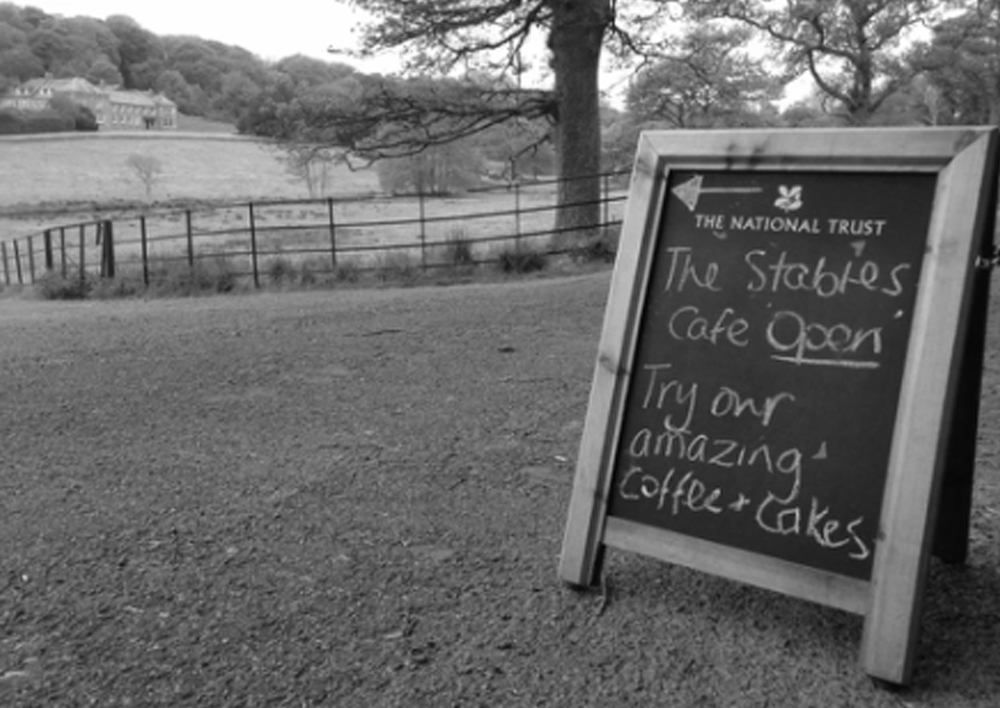 THE NATIONAL TRUST
The Stables
Cafe Open
Try our
amazing
Coffee + Cakes